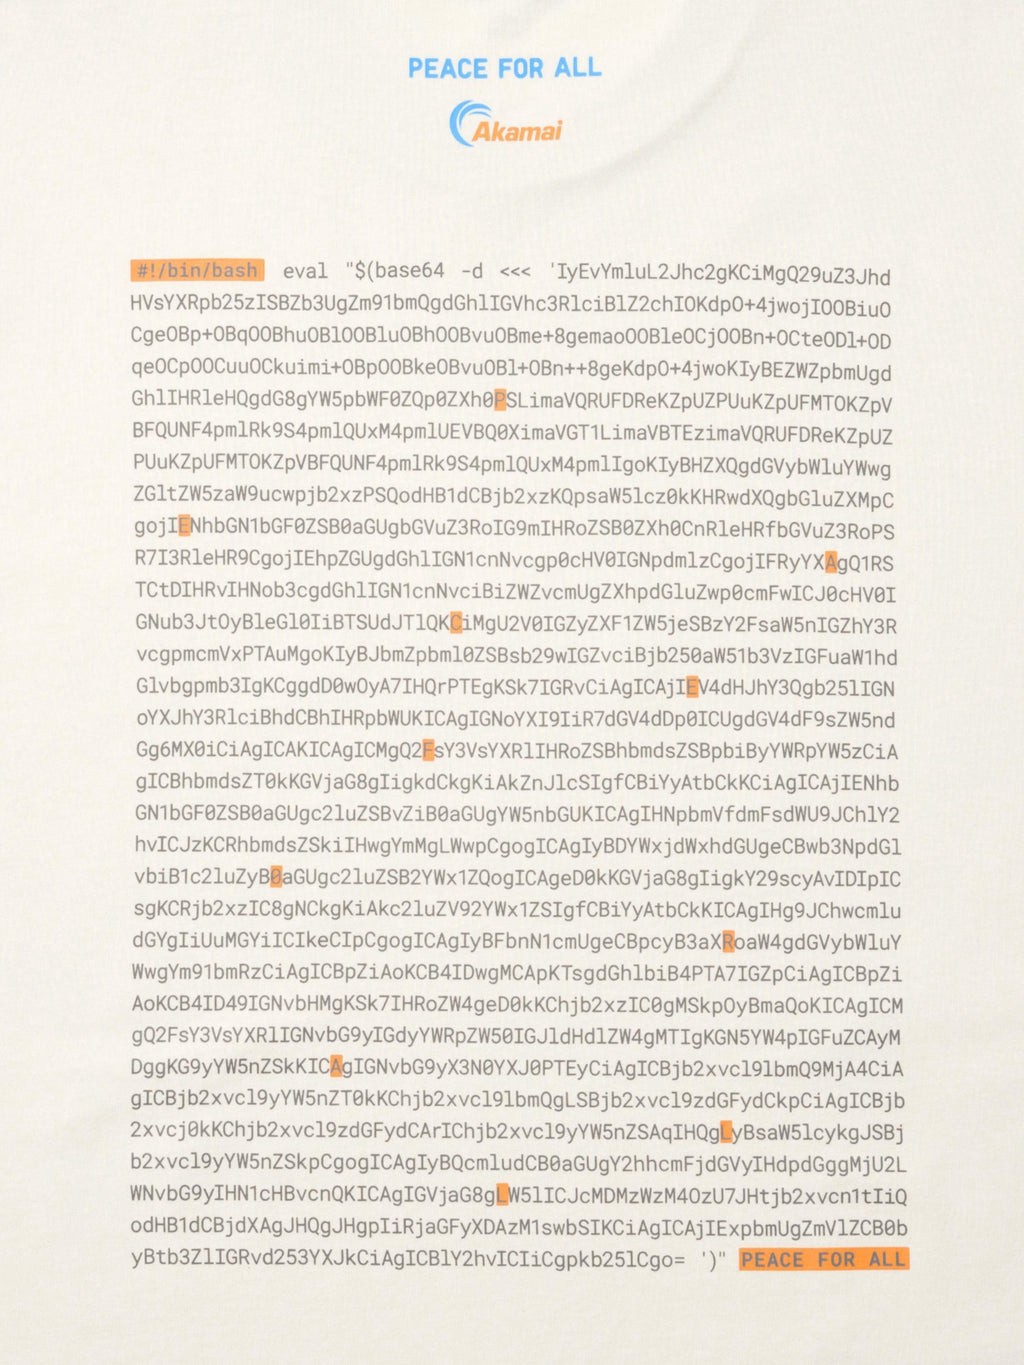 PEACE FOR ALL
Akamai
#!/bin/bash eval "$(base64 -d <<< 'IyEvYmluL2Jhc2gKCiMgQ29uZ3Jhd
HVsYXRpb25zISBZb3UgZm91bmQgdGhlIGVhc3RlciBlZ2chIOKdpO+4jwojIOOBiuO
CgeOBp+OBqOOBhuOBlOOBluOBhOOBvuOBme+8gemaoOOBleOCjOOBn+OCteODl+OD
qeOCpOOCuuOCkuimi+OBpOOBkeOBvuOBl+OBn++8geKdpO+4jwoKIyBEZWZpbmUgd
GhlIHRleHQgdG8gYW5pbWF0ZQp0ZXh0PSLimaVQRUFDReKZpUZPUuKZpUFMTOKZpV
BFQUNF4pmlRk9S4pmlQUxM4pmlUEVBQ0XimaVGT1LimaVBTEzimaVQRUFDReKZpUZ
PUuKZpUFMTOKZpVBFQUNF4pmlRk9S4pmlQUxM4pmlIgoKIyBHZXQgdGVybWluYWwg
ZGltZW5zaW9ucwpjb2xzPSQodHB1dCBjb2xzKQpsaW5lcz0kKHRwdXQgbGluZXMpC
gojIENhbGN1bGF0ZSB0aGUgbGVuZ3RoIG9mIHRoZSB0ZXh0CnRleHRfbGVuZ3RoPS
R7I3RleHR9CgojIEhpZGUgdGhlIGN1cnNvcgp0cHV0IGNpdmlzCgojIFRyYXAgQ1RS
TCtDIHRvIHNob3cgdGhlIGN1cnNvciBiZWZvcmUgZXhpdGluZwp0cmFwICJ0cHV0I
GNub3JtOyBleGl0IiBTSUdJTlQKCiMgU2V0IGZyZXF1ZW5jeSBzY2FsaW5nIGZhY3R
vcgpmcmVxPTAuMgoKIyBJbmZpbml0ZSBsb29wIGZvciBjb250aW51b3VzIGFuaW1hd
Glvbgpmb3IgKCggdD0wOyA7IHQrPTEgKSk7IGRvCiAgICAjIEV4dHJhY3Qgb25lIGN
oYXJhY3RlciBhdCBhIHRpbWUKICAgIGNoYXI9IiR7dGV4dDp0ICUgdGV4dF9sZW5nd
Gg6MX0iCiAgICAKICAgICMgQ2FsY3VsYXRlIHRoZSBhbmdsZSBpbiByYWRpYW5zCiA
gICBhbmdsZT0kKGVjaG8gIigkdCkgKiAkZnJlcSIgfCBiYyAtbCkKCiAgICAjIENhb
GN1bGF0ZSB0aGUgc2luZSBvZiB0aGUgYW5nbGUKICAgIHNpbmVfdmFsdWU9JChlY2
hvICJzKCRhbmdsZSkiIHwgYmMgLWwpCgogICAgIyBDYWxjdWxhdGUgeCBwb3NpdGl
vbiB1c2luZyB0aGUgc2luZSB2YWx1ZQogICAgeD0kKGVjaG8gIigkY29scyAvIDIpIC
sgKCRjb2xzIC8gNCkgKiAkc2luZV92YWx1ZSIgfCBiYyAtbCkKICAgIHg9JChwcmlu
dGYgIiUuMGYiICIkeCIpCgogICAgIyBFbnN1cmUgeCBpcyB3aXRoaW4gdGVybWluY
WwgYm91bmRzCiAgICBpZiAoKCB4IDwgMCApKTsgdGhlbiB4PTA7IGZpCiAgICBpZi
AoKCB4ID49IGNvbHMgKSk7IHRoZW4geD0kKChjb2xzIC0gMSkpOyBmaQoKICAgICM
gQ2FsY3VsYXRlIGNvbG9yIGdyYWRpZW50IGJldHdlZW4gMTIgKGN5YW4pIGFuZCAyM
DggKG9yYW5nZSkKICAgIGNvbG9yX3N0YXJ0PTEyCiAgICBjb2xvcl9lbmQ9MjA4CiA
gICBjb2xvcl9yYW5nZT0kKChjb2xvcl9lbmQgLSBjb2xvcl9zdGFydCkpCiAgICBjb
2xvcj0kKChjb2xvcl9zdGFydCArIChjb2xvcl9yYW5nZSAqIHQgLyBsaW5lcykgJSBj
b2xvcl9yYW5nZSkpCgogICAgIyBQcmludCB0aGUgY2hhcmFjdGVyIHdpdGggMjU2L
WNvbG9yIHN1cHBvcnQKICAgIGVjaG8gLW5lICJcMDMzWzM4OzU7JHtjb2xvcn1tIiQ
odHB1dCBjdXAgJHQgJHgpIiRjaGFyXDAzM1swbSIKCiAgICAjIExpbmUgZmVlZCB0b
yBtb3ZlIGRvd253YXJkCiAgICBlY2hvICIiCgpkb25lCgo= ')" PEACE FOR ALL